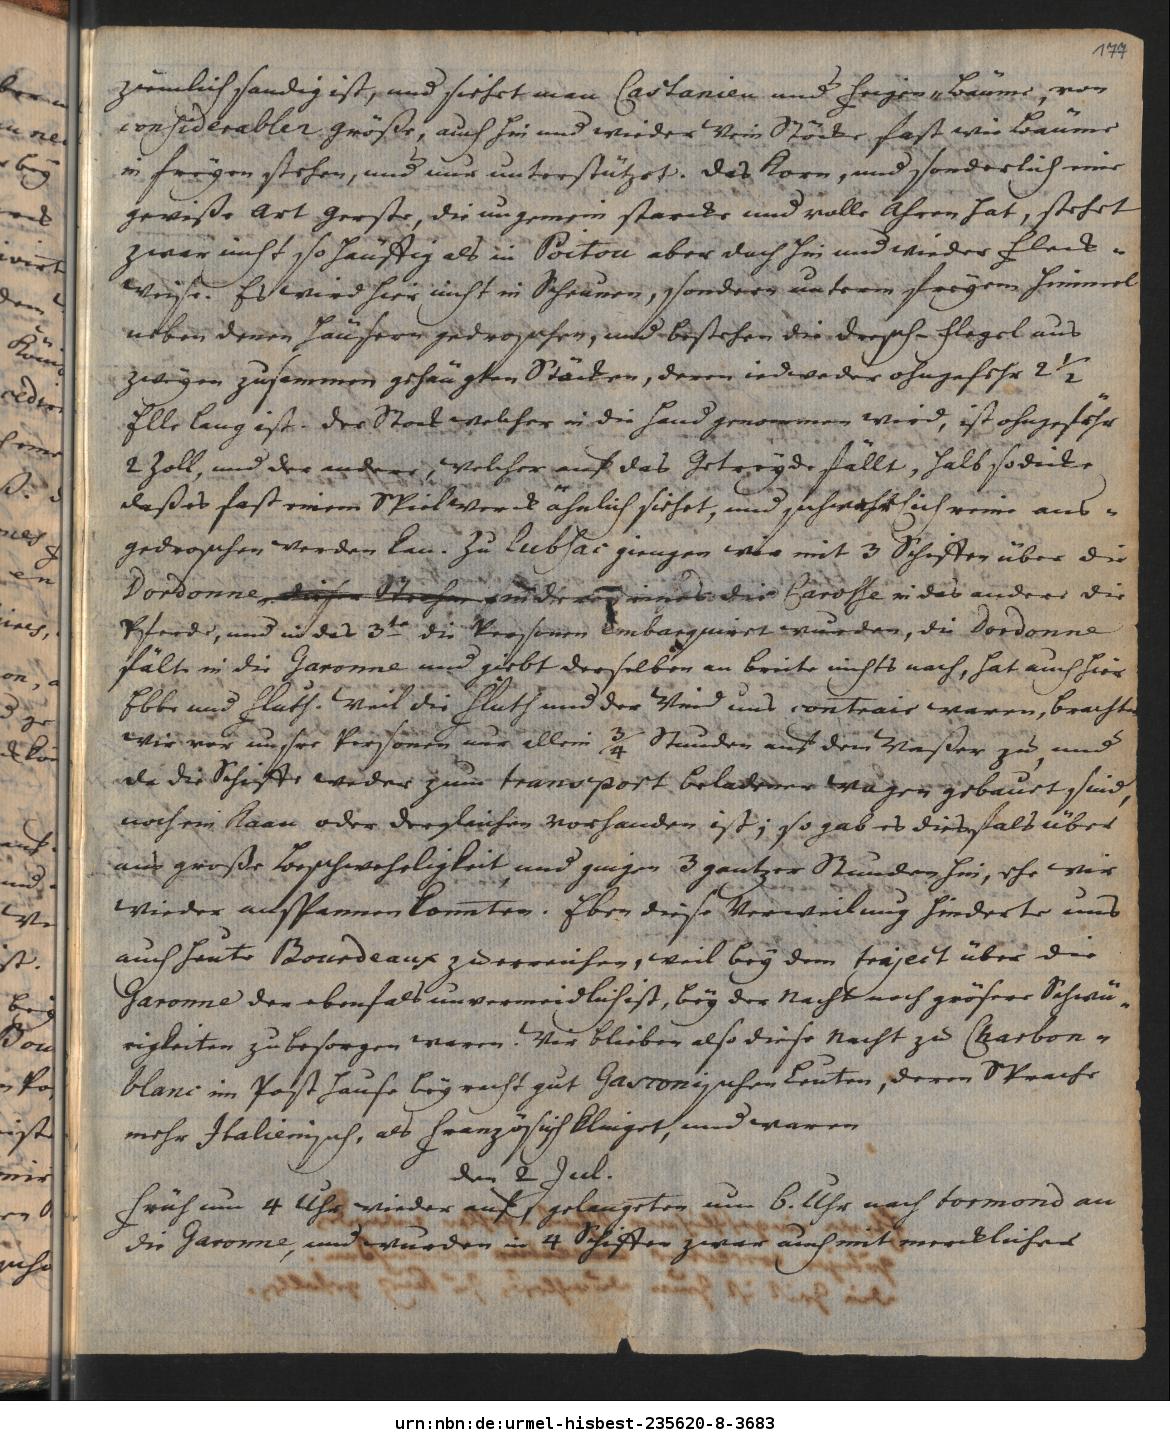 177
ziemlich sandig ist, und siehet man Castanien und Feigen-Bäume, von
considerabler größe, auch hin und wieder Wein Stöcke fast wie Bäume
in freyen stehen, und nur unterstützet. Das Korn, und sonderlich eine
gewiße Art Gerste, die ungemein starcke und volle Ähren hat, stehet
zwar nicht so häuffig als in Poitou aber doch hin und wieder Fleck-
weise. Es wird hier nicht in Scheunen, sondern unterm freyem Himmel
neben denen Häusern gedroschen, und bestehen die Dresch-Flegel aus
zweyen zusammen gehängten Stöcken, deren iedweder ohngefehr 2 1/2
Elle lang ist. Der Stock welcher in die Hand genommen wird, ist ohngefehr
2 Zoll, und der andere, welcher auf das Getreyde fällt, halb so dicke
daß es fast einem Spielwerck ähnlich siehet, und schwehrlich reine aus-
gedroschen werden kan. Zu Cubsac giengen wir mit 3 Schiffen über die
Dordonne, in deren eines die Carosse in das andere die
Pferde, und in das 3te die Personen embarquiret wurden, die Dordonne
fält in die Garonne und giebt derselben an breite nichts nach, hat auch hier
Ebbe und Fluth. Weil die Fluth und der Wind uns contrair waren, brachten
wir vor unsre Personen nur allein 3/4 Stunden auf dem Waßer zu, und
da die Schiffe weder zum transport beladener Wagen gebauet sind,
noch ein Kaan oder dergleichen vorhanden ist; so gab es diesfals über
aus große Beschwehrligkeit, und giengen 3 gantzer Stunden hin, ehe wir
wieder anspannen konten. Eben diese Verweilung hinderte uns
auch heute Bourdeaux zu erreichen, weil bey dem traject über die
Garonne der ebenfals unvermeidlich ist, bey der Nacht noch größere Schwü-
rigkeiten zu besorgen waren. Wir blieben also diese Nacht zu Charbon-
blanc im Post Hause bey recht gut Gasconischen Leuten, deren Sprache
mehr Italienisch, als Französisch klinget, und waren
den 2 Jul.
Früh um 4 Uhr wieder auf, gelangeten um 6. Uhr nach Lormond an
die Garonne, und wurden in 4 Schiffen zwar auch mit mercklicher
urn:nbn:de:urmel-hisbest-235620-8-3683